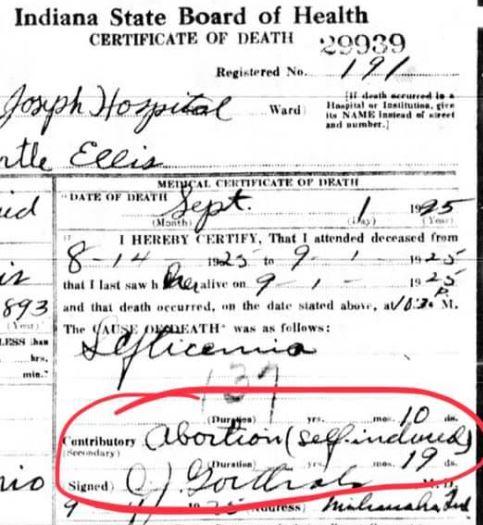 Indiana State Board of Health
CERTIFICATE OF DEATH 29939
Registered No. 191
Joseph Hospital Ward
[If death occurred in a Hospital or Institution, give its NAME instead of street and number.]
rtle Ellis
MEDICAL CERTIFICATE OF DEATH
DATE OF DEATH Sept. 1 1925
(Month) (Day) (Year)
I HEREBY CERTIFY, That I attended deceased from
8-14 1925 to 9-1- 1925
that I last saw her alive on 9-1- 1925
893
(Year)
and that death occurred, on the date stated above, at M.
LESS than
The CAUSE OF DEATH* was as follows:
hrs.
min.
Septicemia
137
(Duration) yrs. mos. 10 ds.
Contributory Abortion (self-induced)
(Secondary)
(Duration) yrs. mos. 19 ds.
Signed) M. D.
(Address)